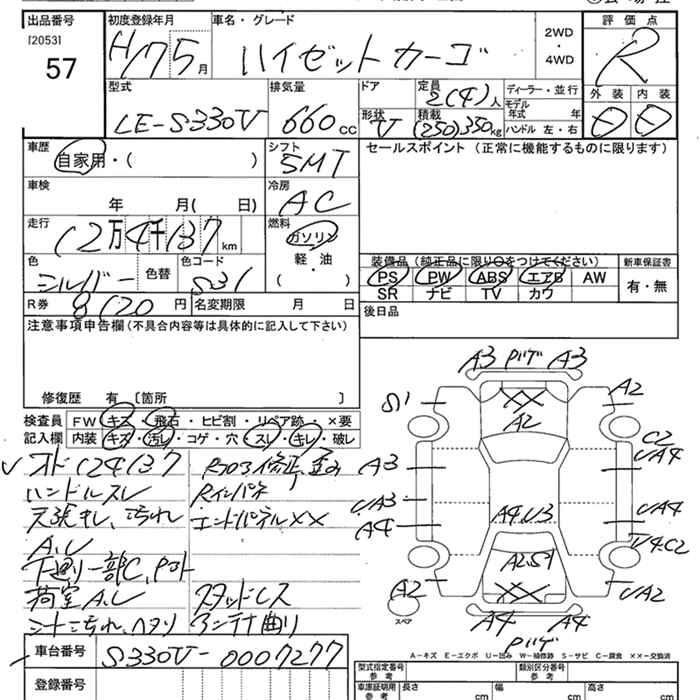 出品番号
[2053]
57
初度登録年月
H17 5月
車名・グレード
ハイゼットカーゴ
2WD
・
4WD
評価点
R
外装 内装
型式
LE-S330V
排気量
660cc
ドア
形状
V
定員
2(4)人
積載
(250)350kg
ディーラー・並行
モデル年式 年
ハンドル 左・右
車歴
自家用・( )
シフト
5MT
セールスポイント(正常に機能するものに限ります)
車検
年 月( 日)
冷房
AC
走行
12万4千137km
燃料
ガソリン
軽・油
( )
色
シルバー
色替
色コード
S31
装備品(純正品に限り○をつけてください)
PS PW ABS エアB AW
SR ナビ TV カワ
新車保証書
有・無
R券
8120円
名変期限 月 日
後日品
注意事項申告欄(不具合内容等は具体的に記入して下さい)
修復歴 有 [箇所 ]
検査員記入欄
FW キズ・飛石・ヒビ割・リペア跡・×要
内装 キズ・汚レ・コゲ・穴・スレ・キレ・破レ
オド124137
ハンドルスレ
天張キレ、汚れ
A、U
下廻り一部C、Pサト
荷室A、U
シート汚れ、ヘタリ
Rフロア修正、歪み
Rインパネ
エンドパネル××
スタッドレス
アンテナ曲り
A3 Pバゲ A3
S1
A2
A2
C2
UA4
A3
UA3
A4
A4.U3
UA4
U4.C2
A2.S1
A2
UA2
スペア
A4 A4
Pバゲ
A-キズ E-エクボ U-凹み W-補修跡 S-サビ C-腐食 ××-交換済
車台番号
S330V-0007277
登録番号
型式指定番号
参考
類別区分番号
参考
車庫証明用
参考
長さ cm
幅 cm
高さ cm